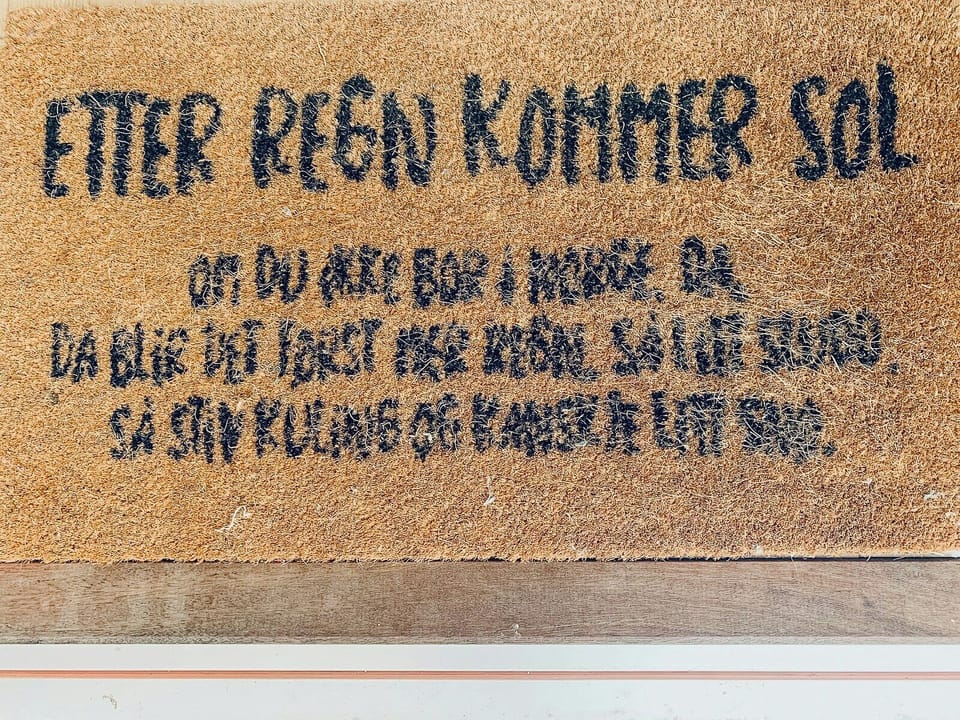 ETTER REGN KOMMER SOL
OM DU IKKE BOR I NORGE. DA
DA BLIR DET FØRST MER REGN, SÅ LITT SLUDD,
SÅ STIV KULING OG KANSKJE LITT SNØ.